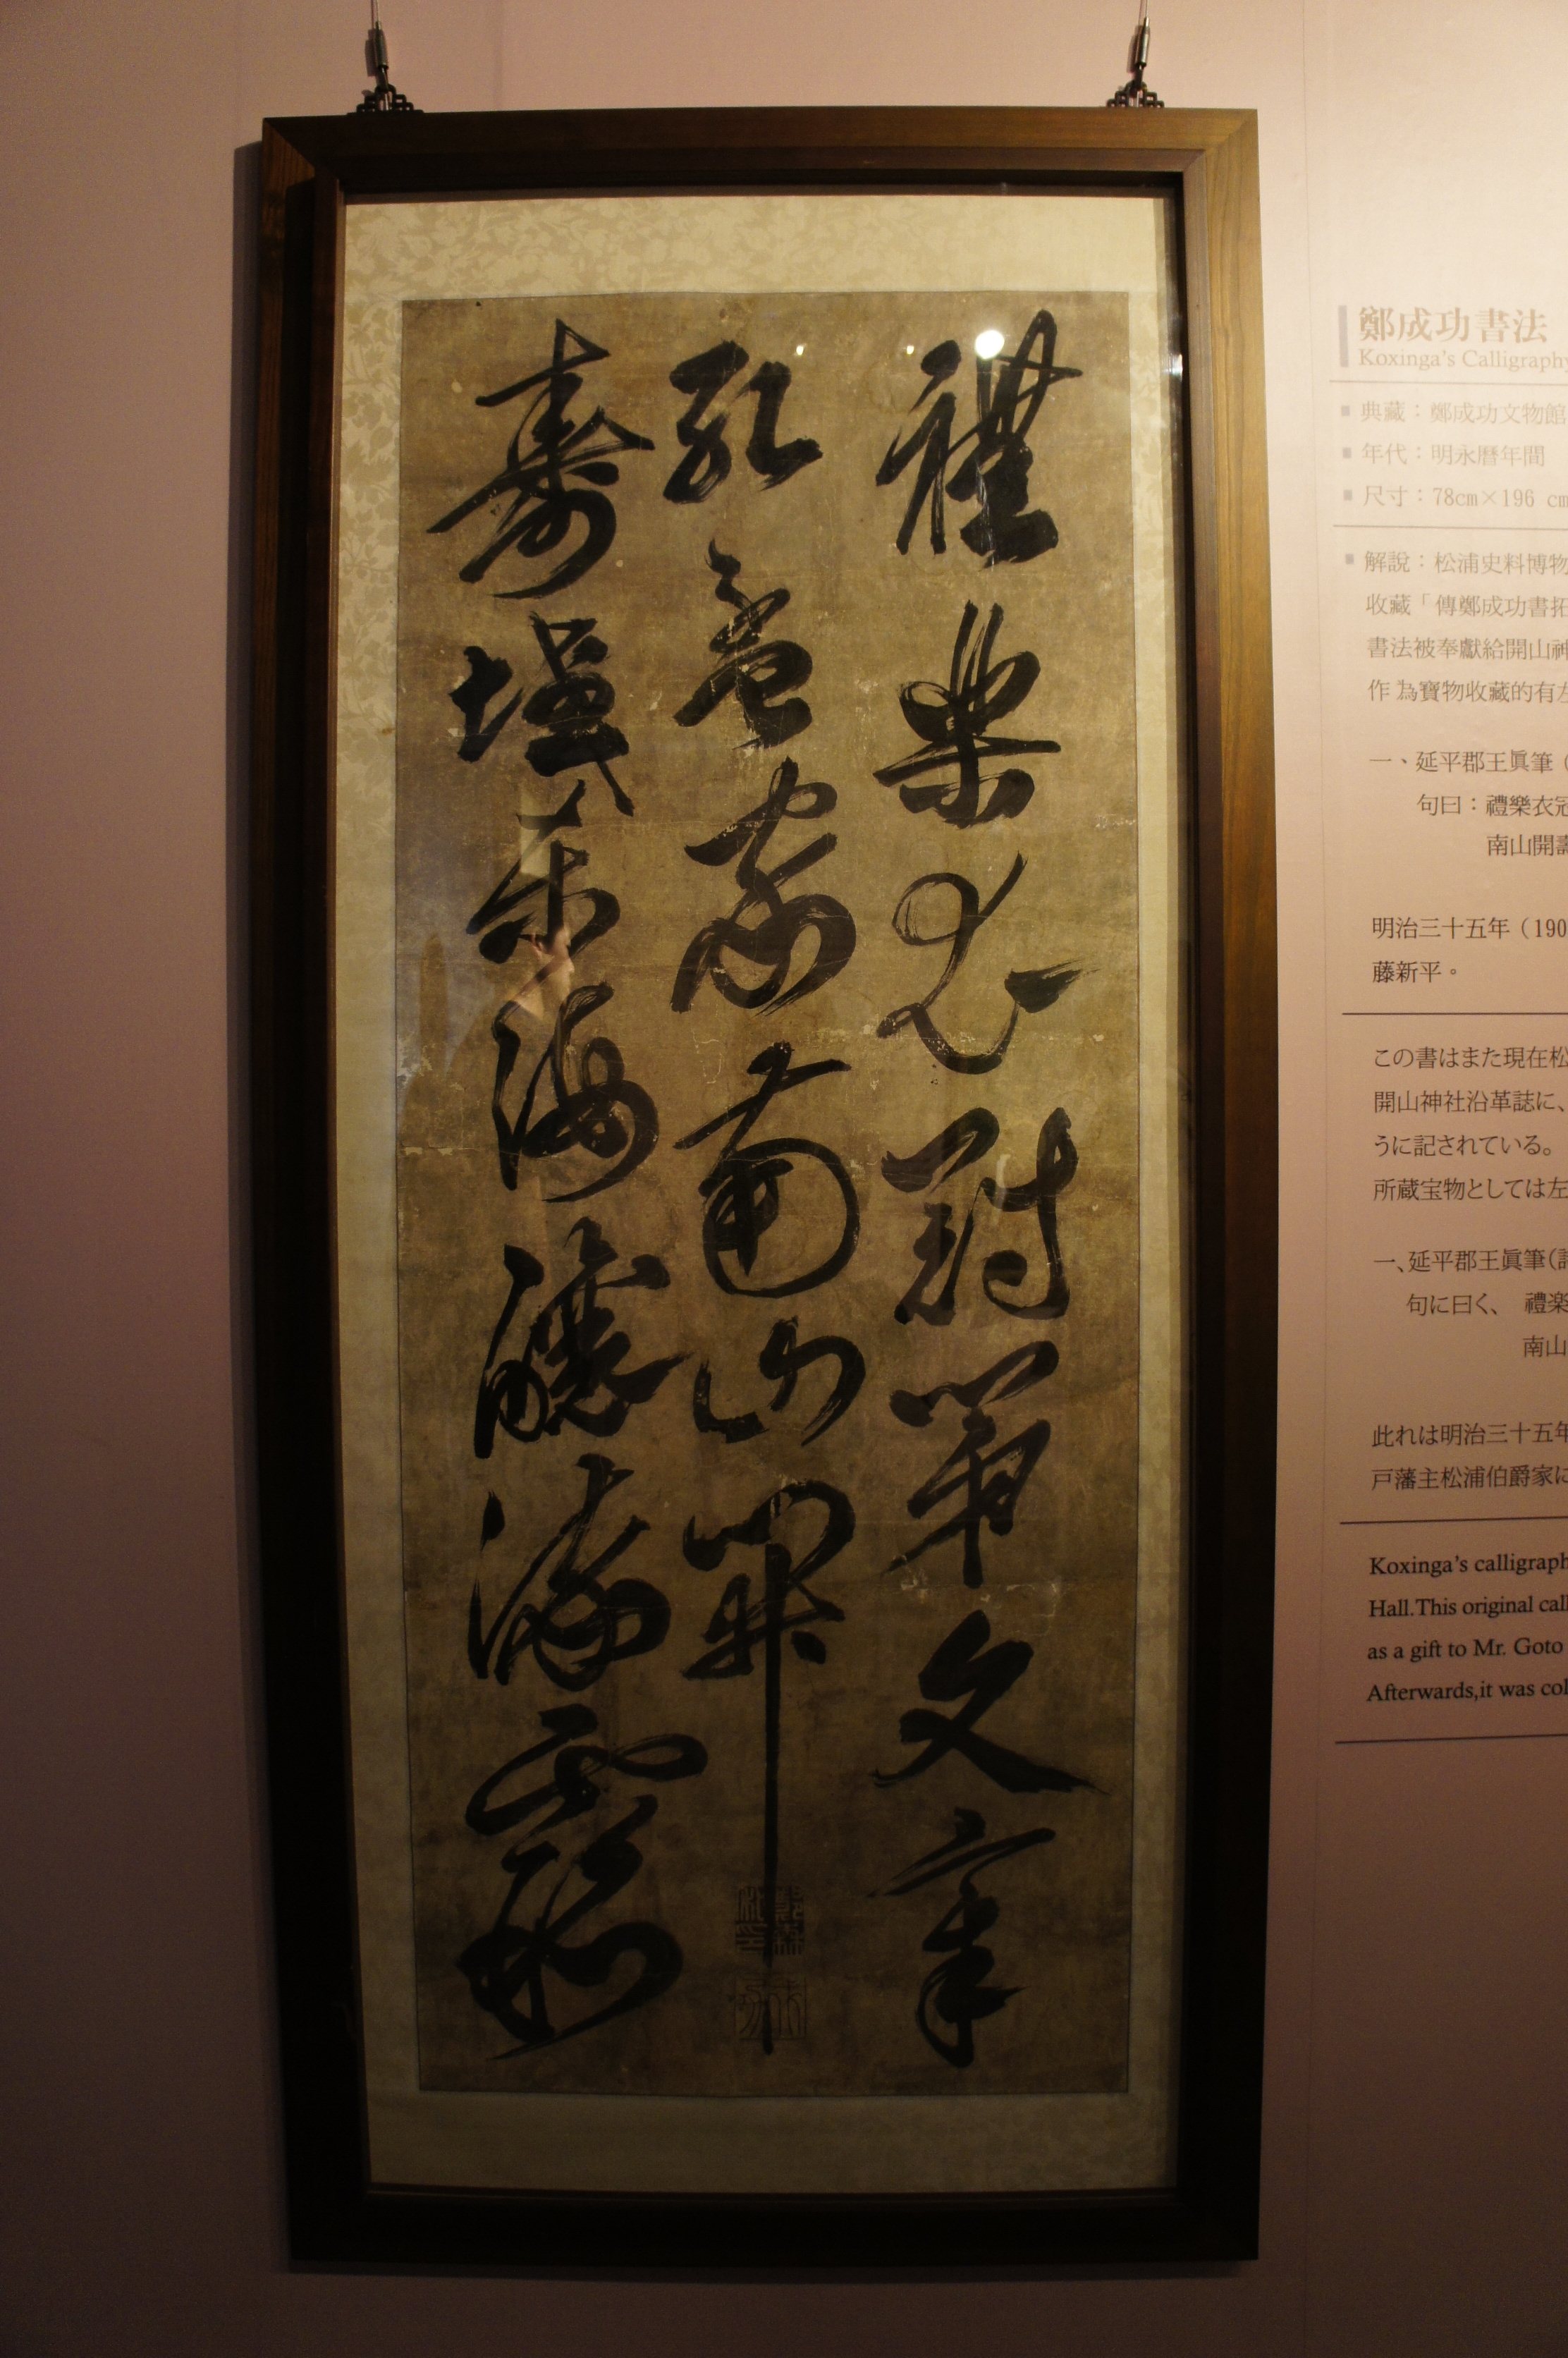 禮樂衣冠第文章
孔孟家南山開
壽域東海釀流霞
鄭成功書法
Koxinga's Calligraphy
典藏：鄭成功文物館
年代：明永曆年間
尺寸：78cm×196 cm
解說：松浦史料博物
收藏「傳鄭成功書拓
書法被奉獻給開山神
作為寶物收藏的有左
一、延平郡王眞筆（
句曰：禮樂衣冠
南山開壽
明治三十五年（190
藤新平。
この書はまた現在松
開山神社沿革誌に、
うに記されている。
所蔵宝物としては左
一、延平郡王眞筆（詩
句に曰く、 禮楽
南山
此れは明治三十五年
戸藩主松浦伯爵家に
Koxinga's calligraph
Hall.This original call
as a gift to Mr. Goto
Afterwards,it was col